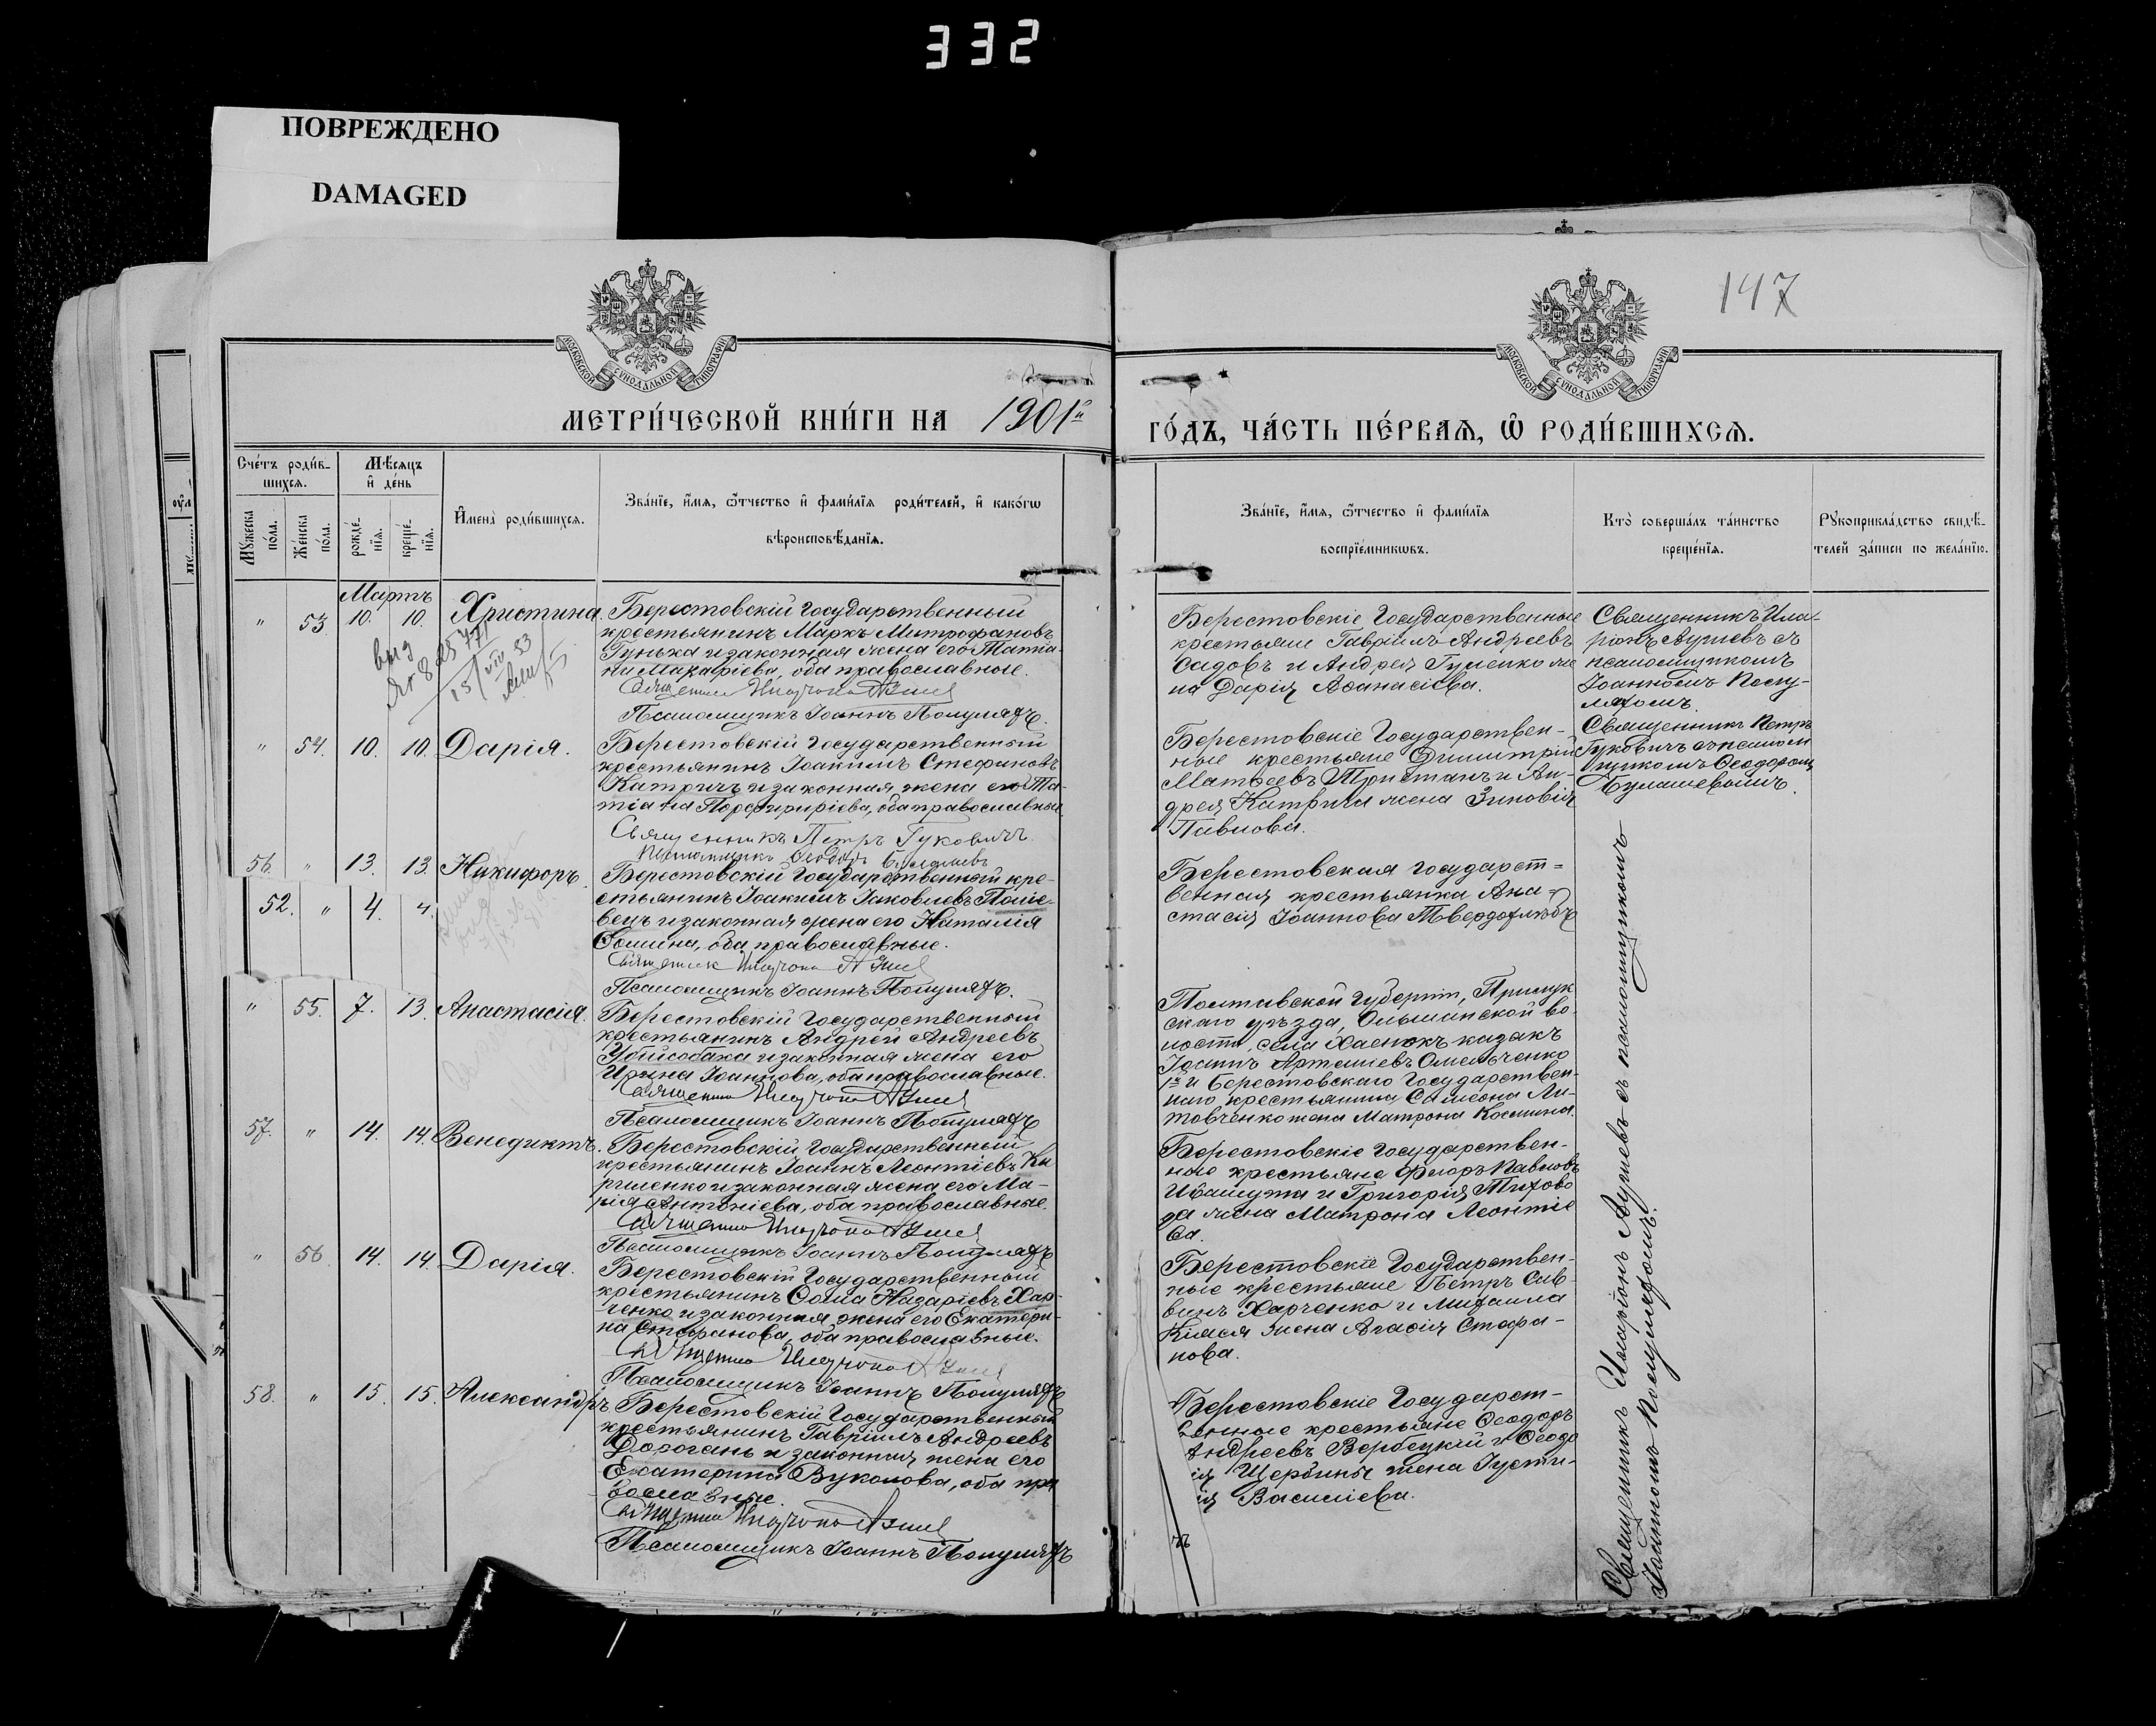 332
ПОВРЕЖДЕНО
DAMAGED
147
МОСКОВСКОЙ СѴНОДАЛЬНОЙ ТИПОГРАФІИ
МОСКОВСКОЙ СѴНОДАЛЬНОЙ ТИПОГРАФІИ
МЕТРИ́ЧЕСКОЙ КНИ́ГИ НА 1901й
ГО́ДЪ, ЧА́СТЬ ПЕ́РВАѦ, Ѽ РОДИ́ВШИХСѦ.
Сче́тъ роди́в-
шихсѧ.
Мꙋ́жеска
по́ла.
Же́нска
по́ла.
Мѣ́сѧцъ
и҆ де́нь
рожде́-
нїѧ.
креще́-
нїѧ.
И҆мена̀ роди́вшихсѧ.
Зва́нїе, и҆́мѧ, ѻ҆́тчество и҆ фами́лїѧ роди́телей, и҆ како́гѡ
вѣроисповѣ́данїѧ.
Зва́нїе, и҆́мѧ, ѻ҆́тчество и҆ фами́лїѧ
воспрїе́мникѡвъ.
Кто̀ соверша́лъ та́инство
креще́нїѧ.
Рꙋкоприкла́дство свидѣ́-
телей за́писи по жела́нїю.
Мартъ
" 53. 10. 10. Христина.
Берестовскій Государственный
крестьянинъ Маркъ Митрофановъ
Гунька и законная жена его Татіа-
на Макаріева, оба православные.
Псаломщикъ Іоаннъ Послулятъ.
Берестовскіе Государственные
крестьяне Гавріилъ Андреевъ
Садовъ и Андрея Гуменко же
на Дарія Аѳанасіева.
Священникъ Ила-
ріонъ съ
псаломщикомъ
Іоанномъ Послу-
лятомъ.
" 54. 10. 10. Дарія.
Берестовскій Государственный
крестьянинъ Іоакимъ Стефановъ
Катричъ и законная жена его Та-
тіана Порфирiева, оба православные
Священникъ Петръ Гуковичъ
Псаломщикъ Ѳеодоръ Булашевъ
Берестовскіе Государствен-
ные крестьяне Димитрій
Матвеевъ Тристанъ и Ан-
дрея Катрича жена Зиновія
Павлова.
Священникъ Петръ
Гуковичъ съ псалом
щикомъ Ѳеодоромъ
Булашевымъ.
56. " 13. 13. Никифоръ.
52. " 4. 4.
Берестовскій Государственный кре-
стьянинъ Іоакимъ Іаковлевъ
и законная жена его Наталія
Ѳомина, оба православные.
Псаломщикъ Іоаннъ Послулятъ.
Берестовская государст=
венная крестьянка Ана=
стасія Іоаннова Твердохлѣбъ
" 55. 7. 13. Анастасія.
Берестовскій Государственный
крестьянинъ Андрей Андреевъ
Убийсобака и законная жена его
Ирина Іоаннова, оба православные.
Псаломщикъ Іоаннъ Послулятъ
Полтавской Губерніи, Прилук
скаго уѣзда, Ольшанской во-
лости, села Хаенокъ казакъ
Іоаннъ Артеміевъ Омельченко
и Берестовскаго Государствен-
наго крестьянина Симеона Ли-
товченко жена Матрона Космина.
57. " 14. 14. Венедиктъ.
Берестовскій Государственный
крестьянинъ Іоаннъ Леонтіевъ Ки
риленко и законная жена его Ма-
рія Антоніева, оба православные.
Псаломщикъ Іоаннъ Послулятъ
Берестовскіе Государствен-
ные крестьяне Флоръ Павловъ
Ивашута и Григорія Тихово
да жена Матрона Леонтіе
ва.
" 56. 14. 14. Дарія.
Берестовскій Государственный
крестьянинъ Ѳома Назаріевъ Хар-
ченко и законная жена его Екатери-
на Стефанова, оба православные.
Псаломщикъ Іоаннъ Послулятъ
Берестовскіе Государствен-
ные крестьяне Петръ Сав-
винъ Харченко и Михаила
жена Агафія Стефа-
нова.
58. " 15. 15. Александръ
Берестовскій Государственный
крестьянинъ Гавріилъ Андреевъ
Дорогань и законная жена его
Екатерина Вуколова, оба пра
вославные.
Псаломщикъ Іоаннъ Послулятъ
Берестовскіе Государст-
венные крестьяне Ѳеодоръ
Андреевъ Вербецкій и Ѳеодо
ія Щербины жена Густи-
ія Василіева.
Священникъ Иларіонъ съ псаломщикомъ
Іоанномъ Послулятомъ.